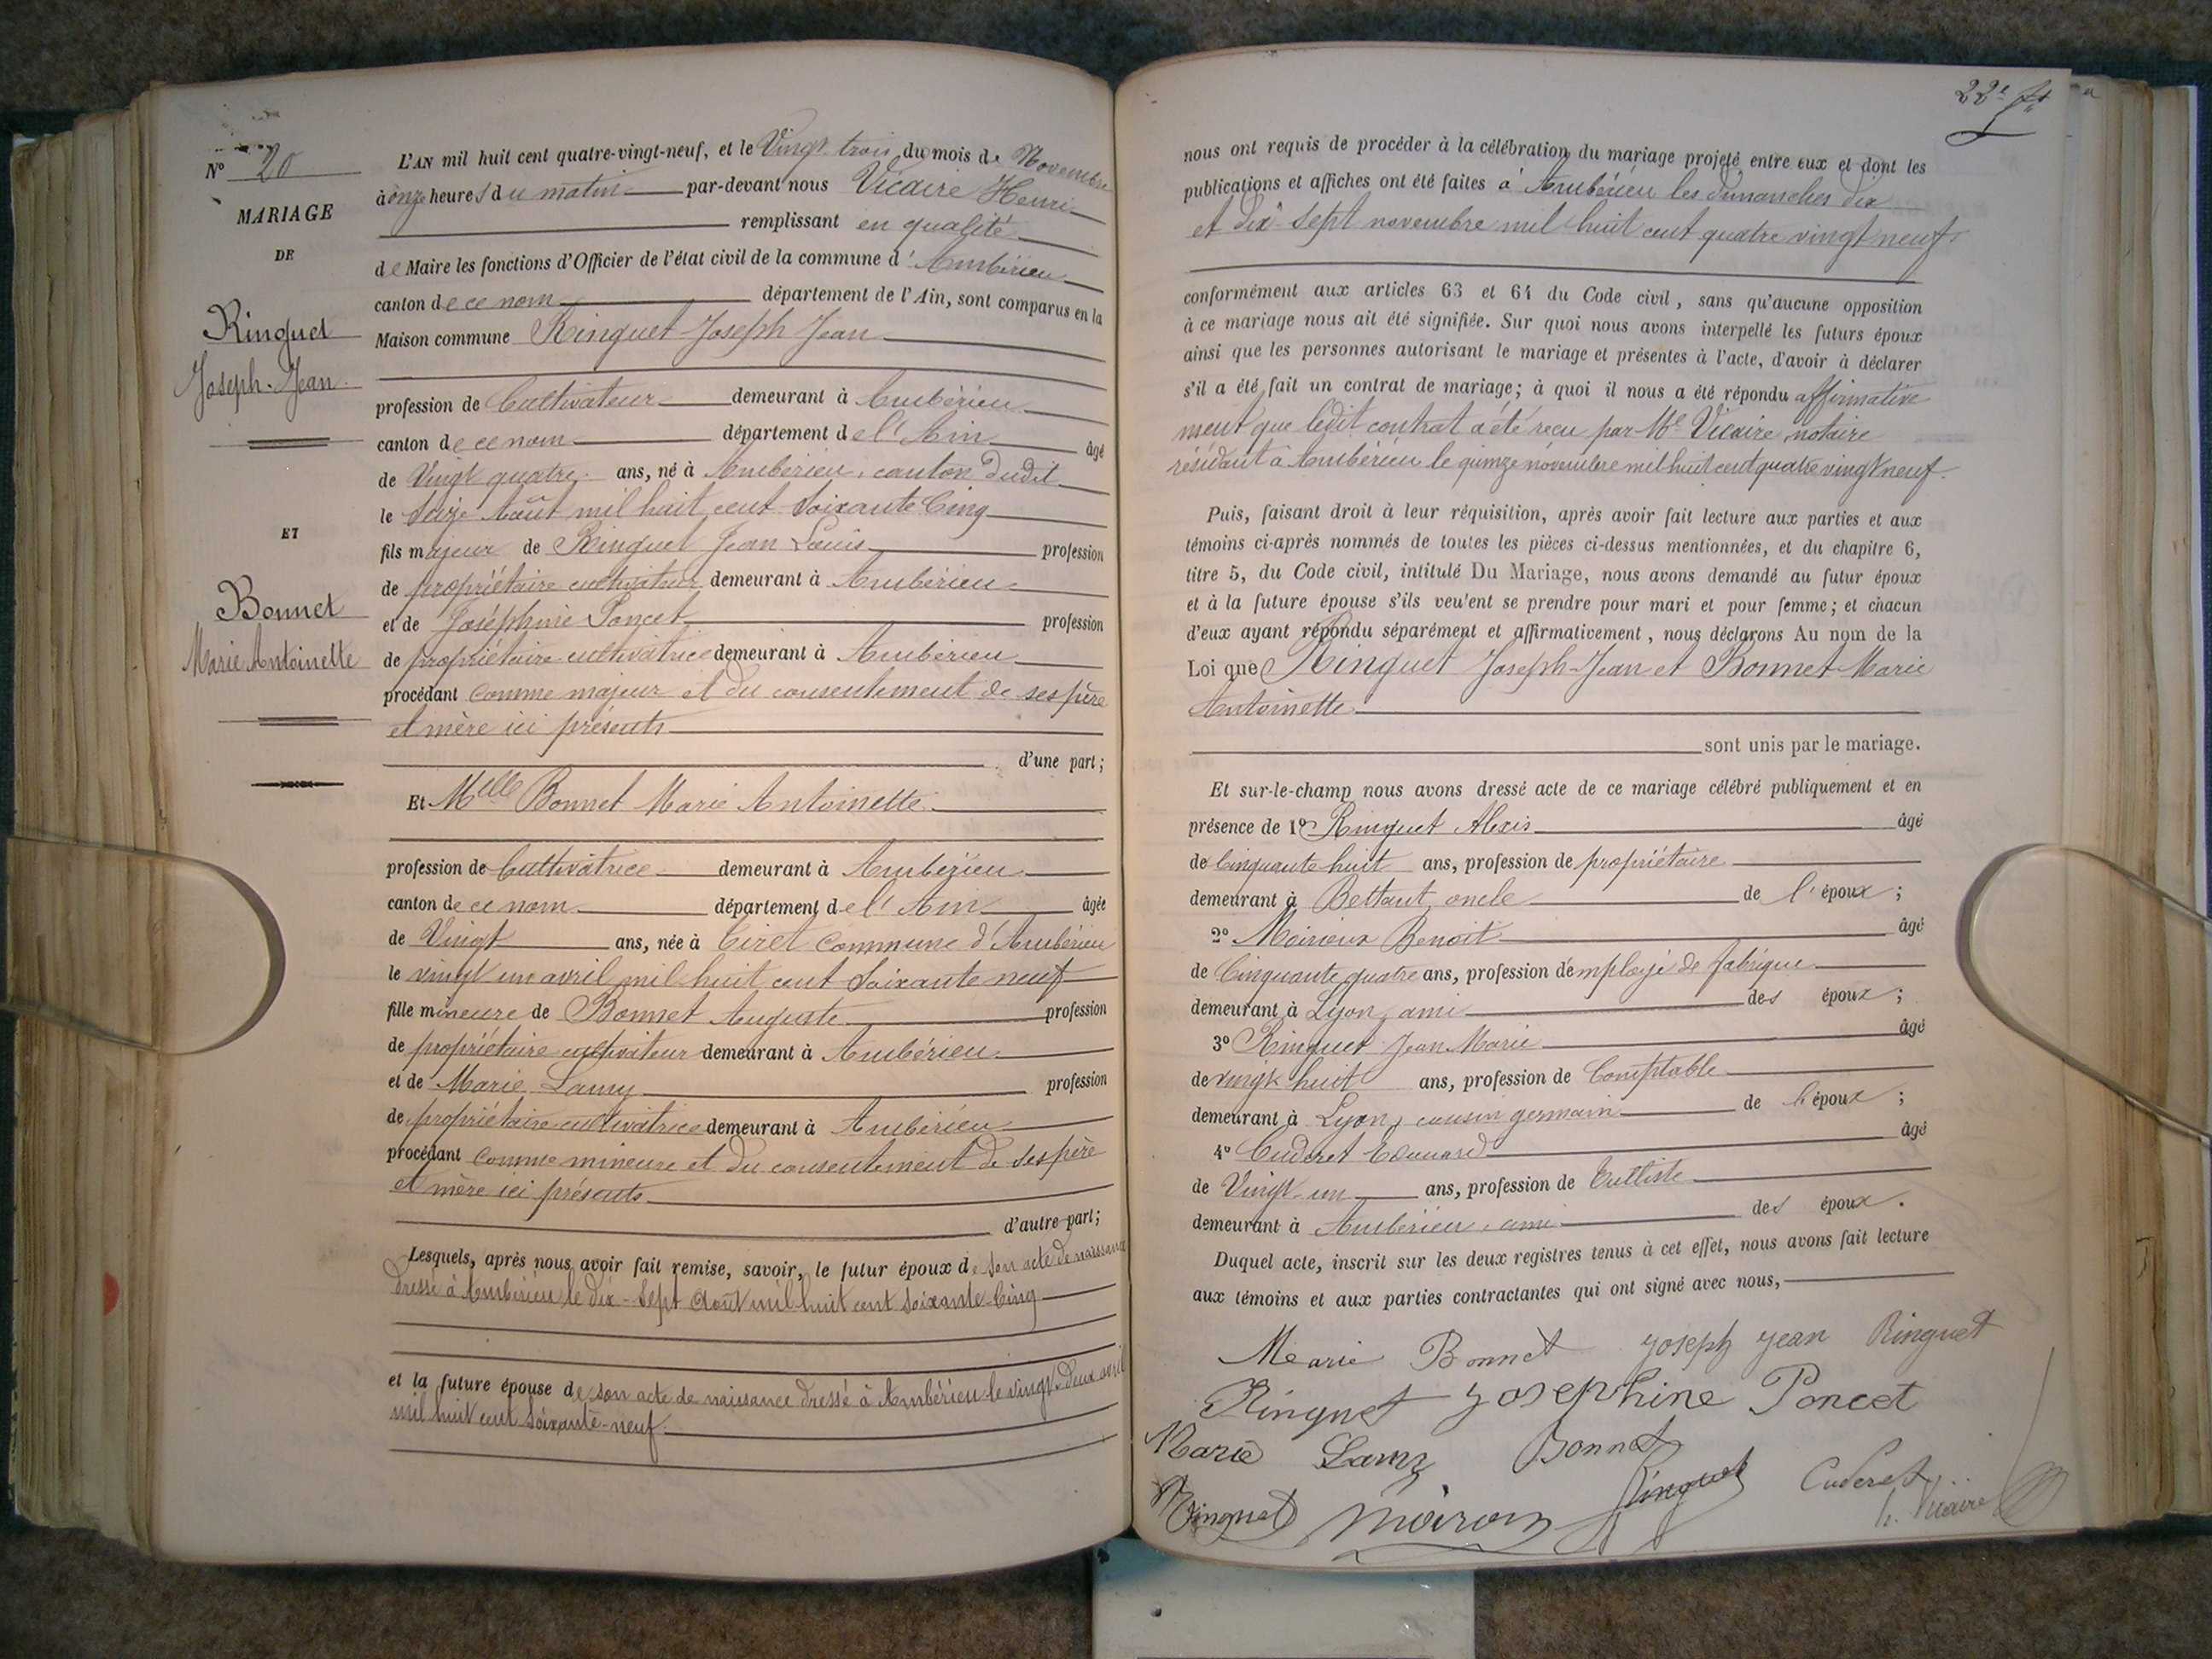 N° 20
MARIAGE
DE
Ringuet
Joseph-Jean
ET
Bonnet
Marie Antoinette
L'AN mil huit cent quatre-vingt-neuf, et le Vingt trois du mois de Novembre
à onze heures du matin par-devant nous Vicaire Henri
remplissant en qualité
de Maire les fonctions d'Officier de l'état civil de la commune d'Ambérieu
canton de ce nom département de l'Ain, sont comparus en la
Maison commune Ringuet Joseph Jean
profession de Cultivateur demeurant à Ambérieu
canton de ce nom département de l'Ain âgé
de Vingt quatre ans, né à Ambérieu, canton dudit
le seize Août mil huit cent soixante Cinq
fils majeur de Ringuet Jean Louis profession
de propriétaire cultivateur demeurant à Ambérieu
et de Joséphine Poncet profession
de propriétaire cultivatrice demeurant à Ambérieu
procédant comme majeur et du consentement de ses père
et mère ici présents
d'une part;
Et Melle Bonnet Marie Antoinette
profession de Cultivatrice demeurant à Ambérieu
canton de ce nom département de l'Ain âgée
de Vingt ans, née à Tiret Commune d'Ambérieu
le vingt un avril mil huit cent soixante neuf
fille mineure de Bonnet Auguste profession
de propriétaire cultivateur demeurant à Ambérieu
et de Marie Lamy profession
de propriétaire cultivatrice demeurant à Ambérieu
procédant comme mineure et du consentement de ses père
et mère ici présents
d'autre part;
Lesquels, après nous avoir fait remise, savoir, le futur époux de son acte de naissance
dressé à Ambérieu le dix-sept août mil huit cent soixante-cinq
et la future épouse de son acte de naissance dressé à Ambérieu le vingt-deux avril
mil huit cent soixante-neuf.
22e
nous ont requis de procéder à la célébration du mariage projeté entre eux et dont les
publications et affiches ont été faites à Ambérieu les dimanches dix
et dix-sept novembre mil huit cent quatre vingt neuf
conformément aux articles 63 et 64 du Code civil, sans qu'aucune opposition
à ce mariage nous ait été signifiée. Sur quoi nous avons interpellé les futurs époux
ainsi que les personnes autorisant le mariage et présentes à l'acte, d'avoir à déclarer
s'il a été fait un contrat de mariage; à quoi il nous a été répondu affirmative
ment que ledit contrat a été reçu par Me Vicaire, notaire
résidant à Ambérieu le quinze novembre mil huit cent quatre vingt neuf.
Puis, faisant droit à leur réquisition, après avoir fait lecture aux parties et aux
témoins ci-après nommés de toutes les pièces ci-dessus mentionnées, et du chapitre 6,
titre 5, du Code civil, intitulé Du Mariage, nous avons demandé au futur époux
et à la future épouse s'ils veulent se prendre pour mari et pour femme; et chacun
d'eux ayant répondu séparément et affirmativement, nous déclarons Au nom de la
Loi que Ringuet Joseph-Jean et Bonnet Marie
Antoinette
sont unis par le mariage.
Et sur-le-champ nous avons dressé acte de ce mariage célébré publiquement et en
présence de 1° Ringuet Alexis âgé
de Cinquante huit ans, profession de propriétaire
demeurant à Bettant, oncle de l'époux;
2° Moirieux Benoit âgé
de Cinquante quatre ans, profession d'employé de fabrique
demeurant à Lyon, ami des époux;
3° Ringuet Jean Marie âgé
de vingt huit ans, profession de Comptable
demeurant à Lyon, cousin germain de l'époux;
4° Cuderet Edouard âgé
de Vingt-un ans, profession de Tulliste
demeurant à Ambérieu, ami des époux.
Duquel acte, inscrit sur les deux registres tenus à cet effet, nous avons fait lecture
aux témoins et aux parties contractantes qui ont signé avec nous,
Marie Bonnet Joseph Jean Ringuet
Ringuet Josephine Poncet
Marie Lamy Bonnet
Ringuet Ringuet Cuderet
h. Vicaire